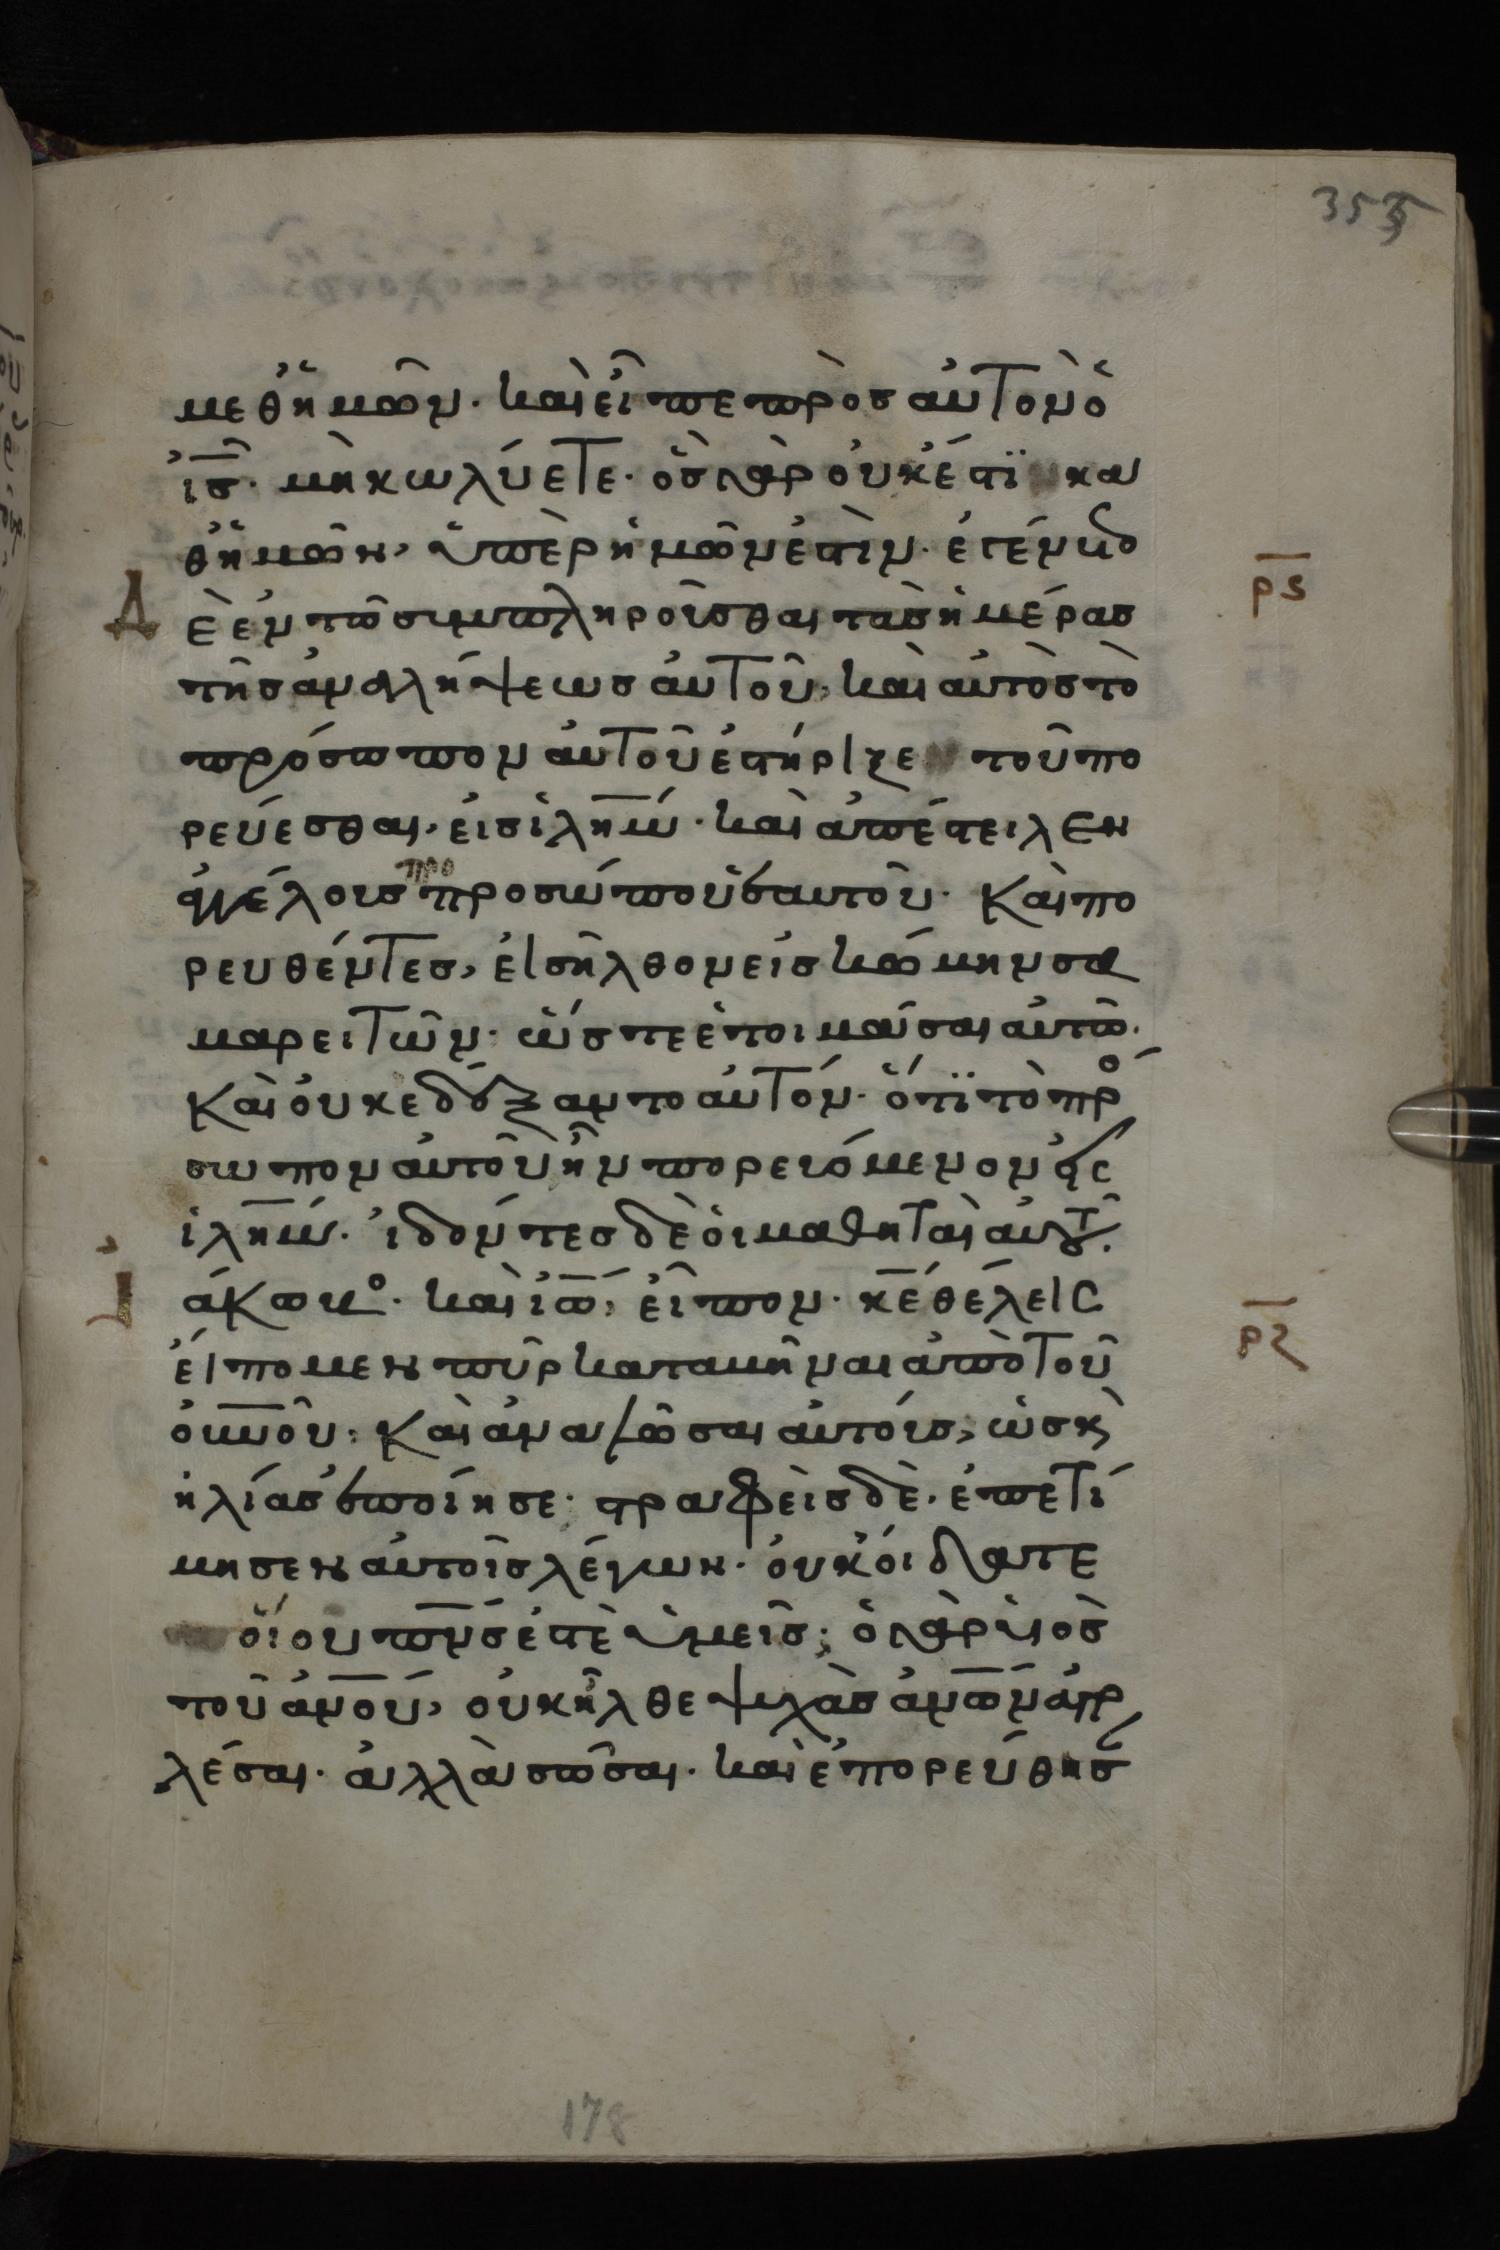 355
μεθἡμῶν· καὶ εἶπε πρὸς αὐτὸν ὁ
ἰς̅· μὴ κωλύετε· ὃς γὰρ οὐκ ἔστϊ κα
θἡμῶν, ὑπὲρ ἡμῶν ἐστὶν· ἐγένετο
ρϛ
δ
ὲ ἐν τῶ συμπληροῦσθαι τὰς ἡμέρας
τῆς ἀναλήψεως αὐτοῦ, καὶ αὐτὸς τὸ
πρόσωπον αὐτοῦ ἐστήριζε τοῦ πο
ρεύεσθαι, εἰς ἰλη̅μ· καὶ ἀπέστειλεν
προ
ἀγγέλους προσώπου αὐτοῦ· Καὶ πο
ρευθέντες, εἰσῆλθον εἰς κώμην σα
μαρειτῶν· ὥστε ἑτοιμάσαι αὐτῶ·
Καὶ οὐκ ἐδέξαντο αὐτόν· ὅτϊ τὸ πρό
σωπον αὐτοῦ ἦν πορευόμενον εἰς
ἰλη̅μ· ἰδόντες δὲ οἱ μαθηταὶ αὐτοῦ·
ἰ
άκωβο· καὶ ἰω̅, εἶπον· κ̅ε θέλεις
ρζ
εἴπομεν πῦρ καταβῆναι ἀπὸ τοῦ
οὐν̅οῦ, Καὶ ἀναλῶσαι αὐτούς, ὡς κὶ
ἠλίας ἐποίησε· στραφεὶς δὲ· ἐπετί
μησεν αὐτοῖς λέγων· οὐκ οἴδατε
οἵου πν̅ς ἐστὲ ὑμεῖς; ὁ γὰρ υἱὸς
τοῦ ἀν̅ου, οὐκ ἦλθε ψυχὰς ἀν̅ων ἀπο
λέσαι· ἀλλὰ σῶσαι· καὶ ἐπορεύθησ
178